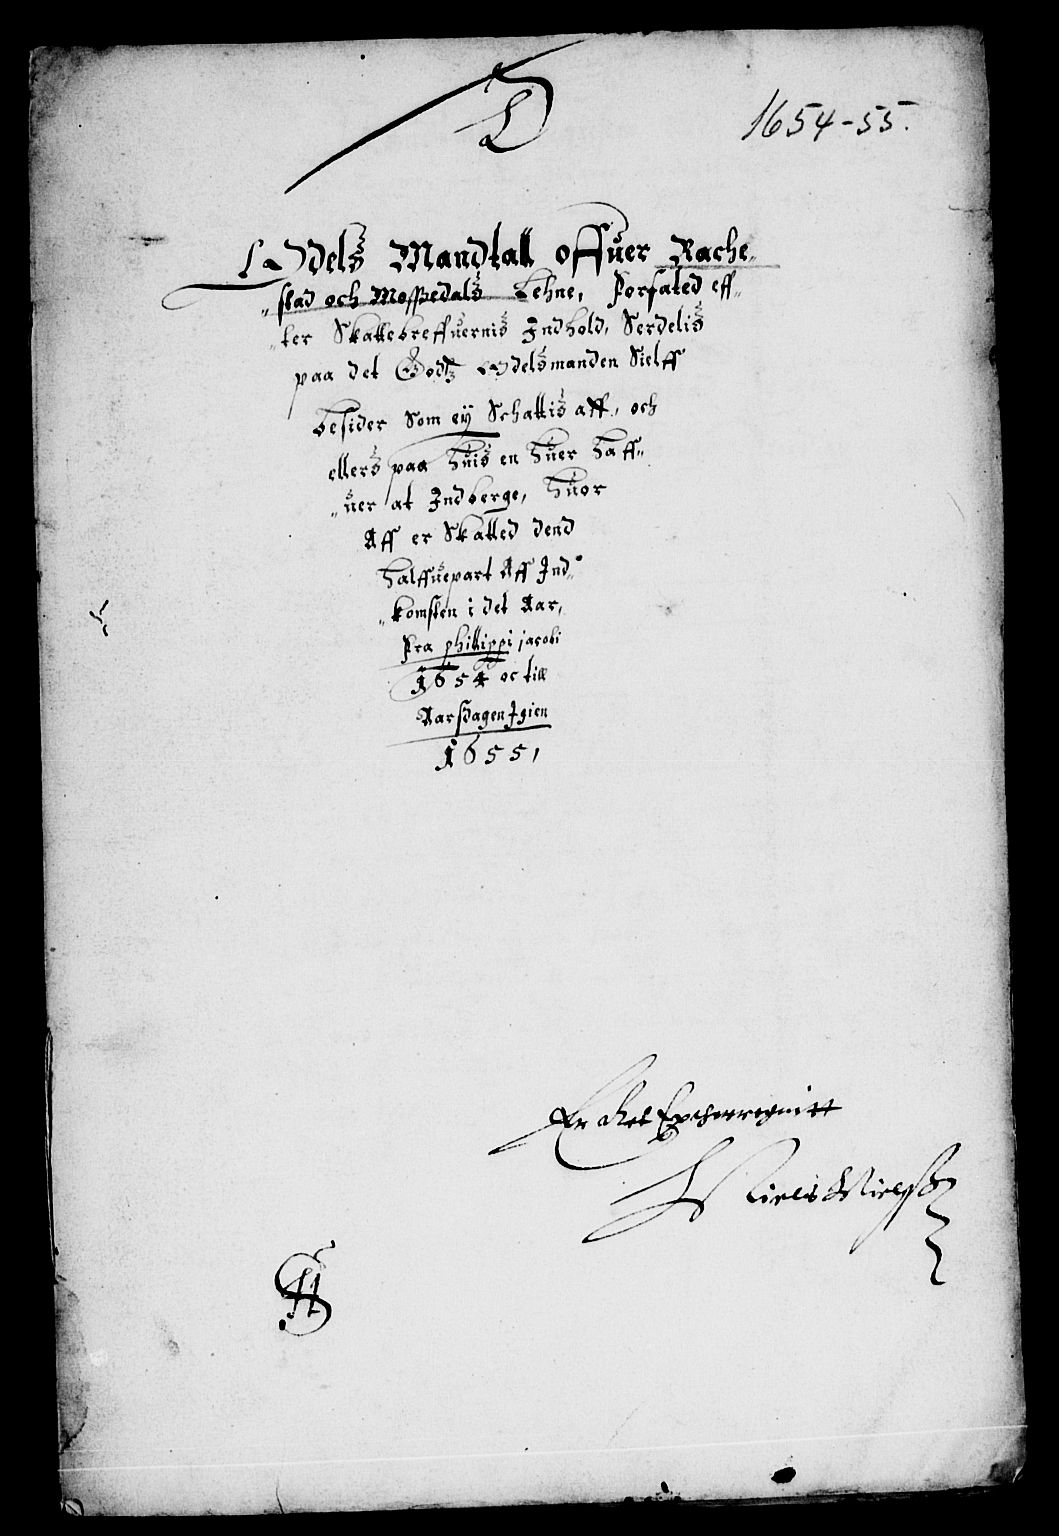 D
1654-55.
Odels Mandtall offuer Rache„
„stad och Mossedals Lehne, Forfated eff„
„ter Skattebreffuernis Indhold, Serdelis
paa det Godtz Odelsmanden Sielff
besider Som ey Schattis aff, och
ellers paa huis en huer haff„
„uer at Indberge, huor
Aff er Skatted dend
halffuepart Aff Ind„
„komsten i det Aar,
Fra phillippi jacobi
1654 oc till
Aarsdagen Igien
1655,
Er
Niels Nielsß